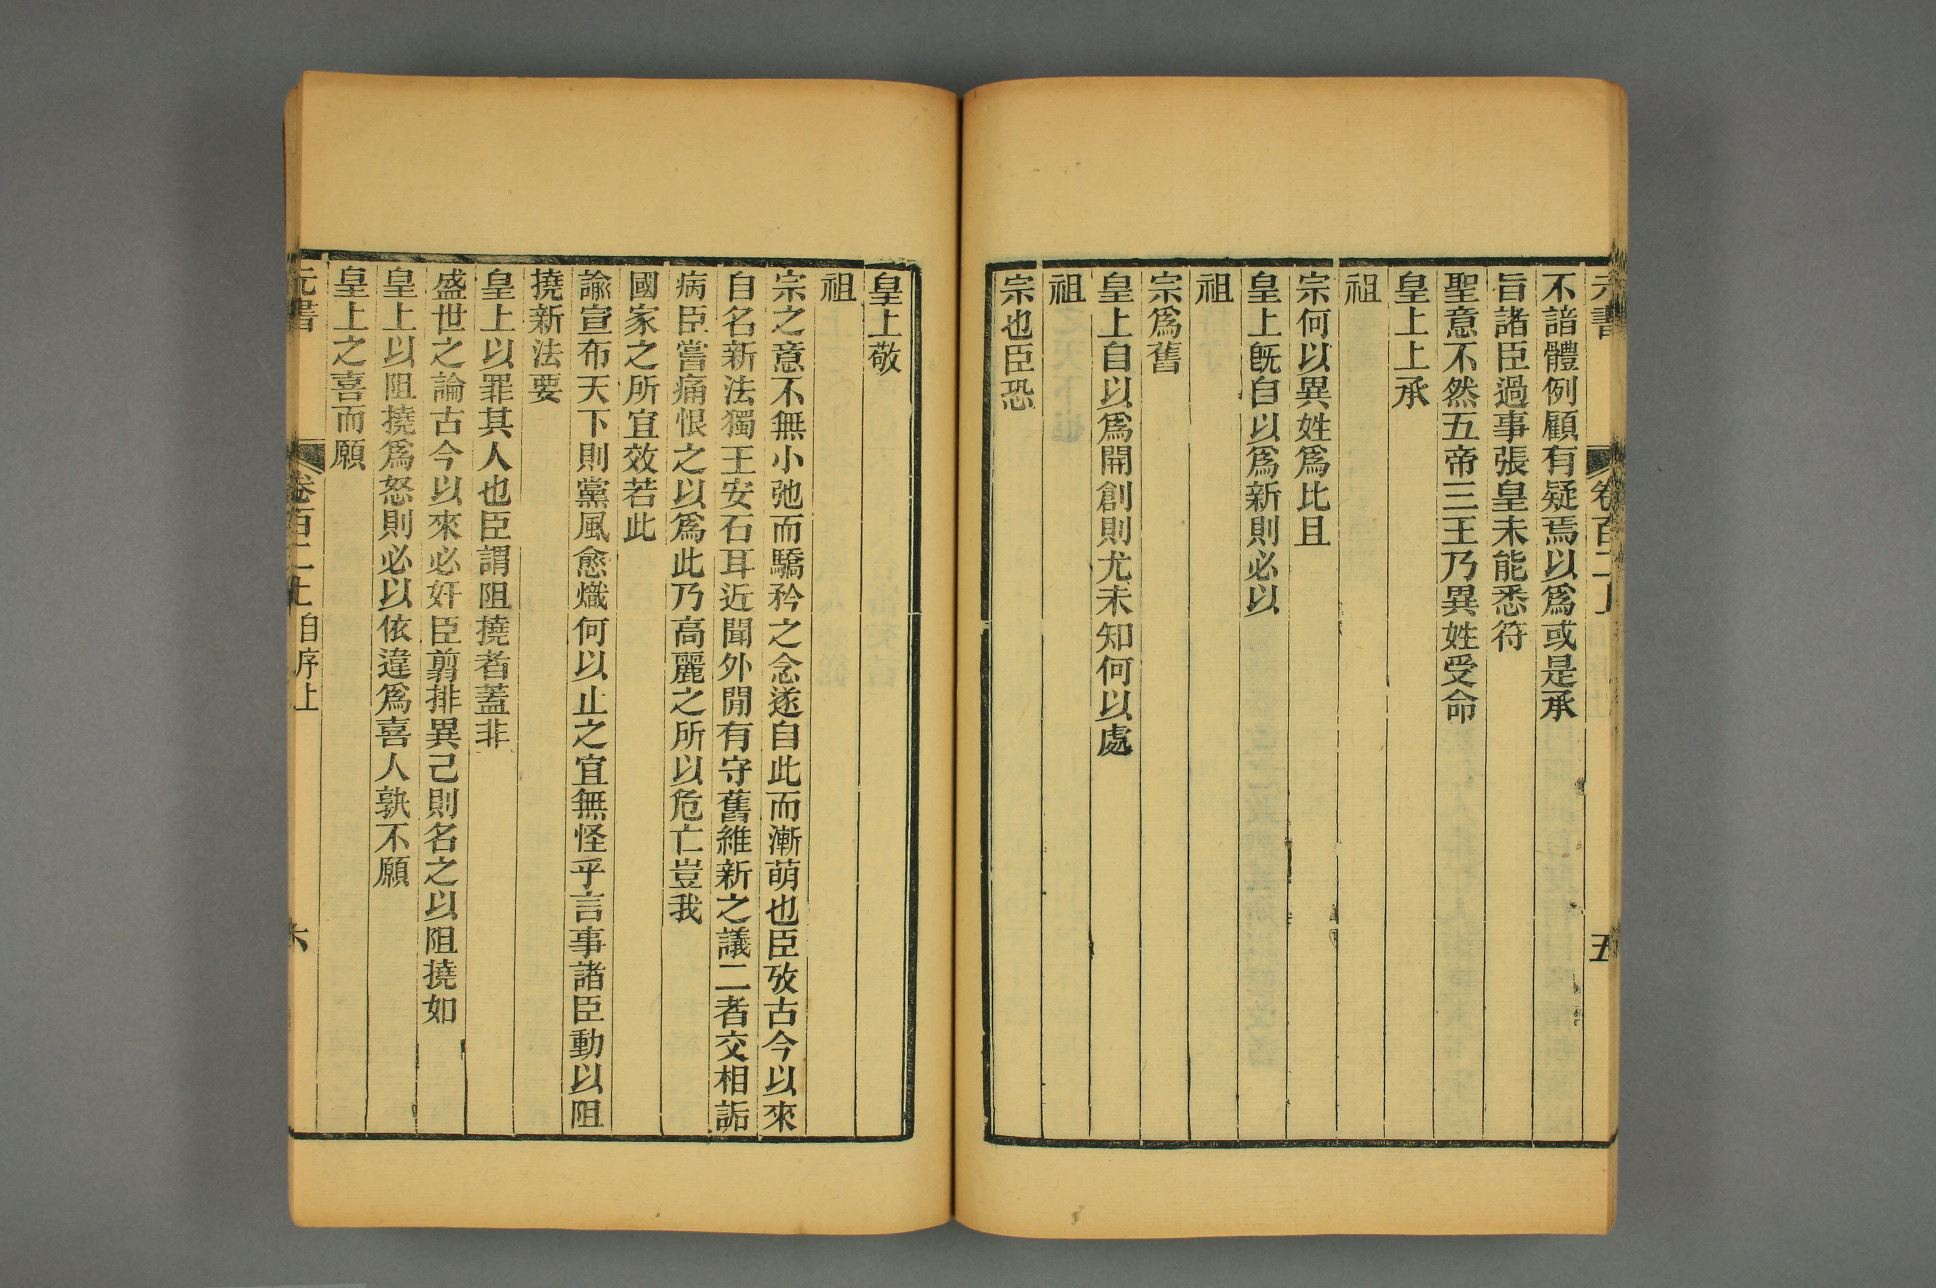 不諳體例顧有疑焉以爲或是承
旨諸臣過事張皇未能悉符
聖意不然五帝三王乃異姓受命
皇上上承
祖
宗何以異姓爲比且
皇上旣自以爲新則必以
祖
宗爲舊
皇上自以爲開創則尤未知何以處
祖
宗也臣恐
皇上敬
祖
宗之意不無小弛而驕矜之念遂自此而漸萌也臣攷古今以來
自名新法獨王安石耳近聞外閒有守舊維新之議二者交相詬
病臣嘗痛恨之以爲此乃高麗之所以危亡豈我
國家之所宜效若此
諭宣布天下則黨風愈熾何以止之宜無怪乎言事諸臣動以阻
撓新法要
皇上以罪其人也臣謂阻撓者蓋非
盛世之論古今以來必奸臣翦排異己則名之以阻撓如
皇上以阻撓爲怒則必以依違爲喜人孰不願
皇上之喜而願
元書
卷百二上自序上
六